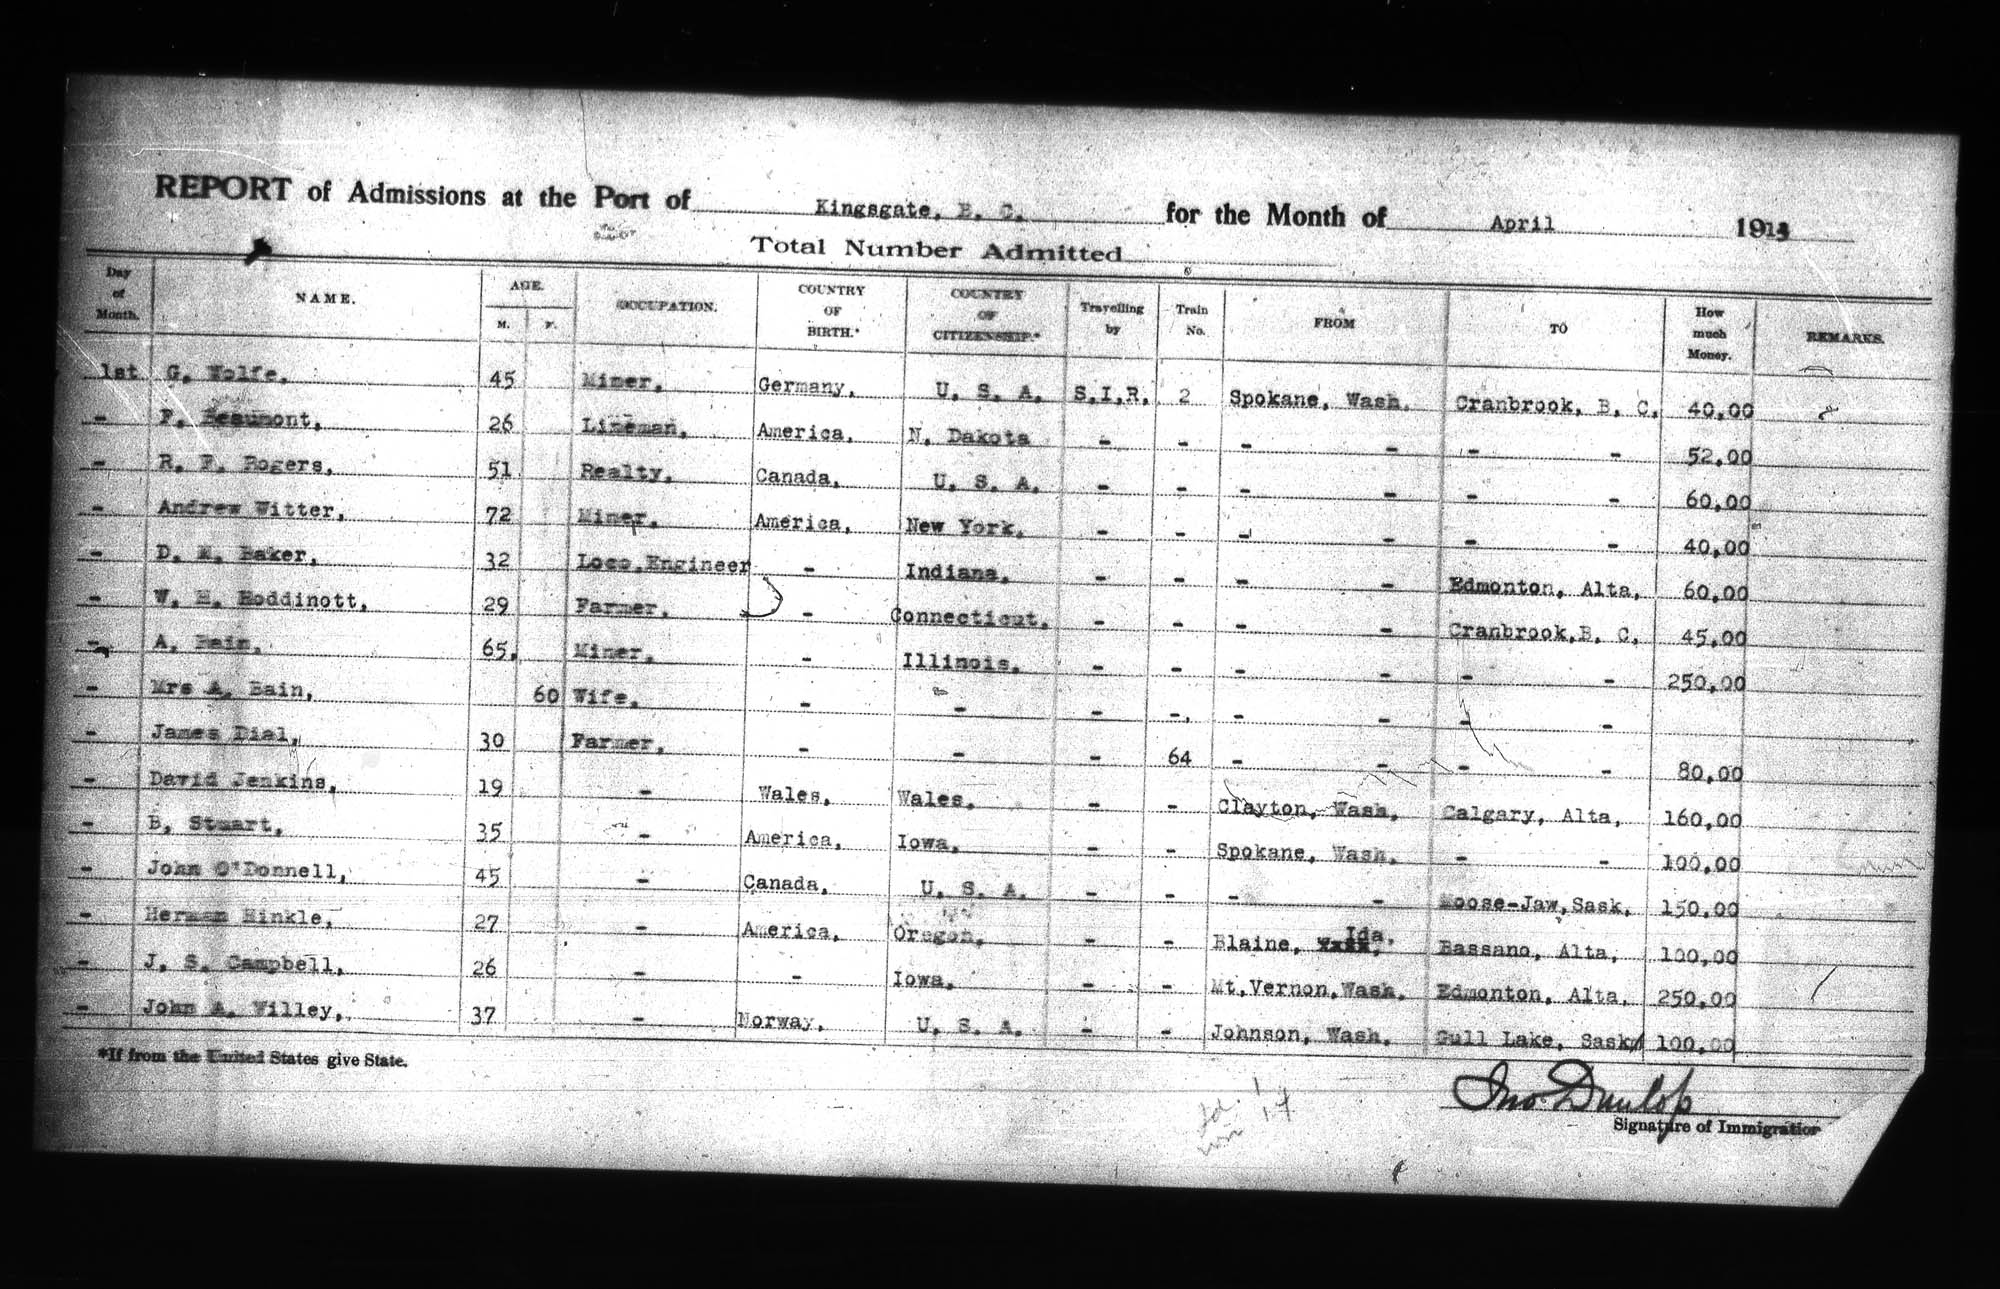 REPORT of Admissions at the Port of Kingsgate, B. C. for the Month of April 191
Total Number Admitted
Day of Month. NAME. AGE. M. F. OCCUPATION. COUNTRY OF BIRTH.* COUNTRY OF CITIZENSHIP.* Travelling by Train No. FROM TO How much Money. REMARKS.
1st G. Wolfe, 45 Miner, Germany, U. S. A. S.I.R. 2 Spokane, Wash. Cranbrook, B. C. 40.00
- F. Beaumont, 26 Lineman, America, N. Dakota - - - - - - 52.00
- R. F. Rogers, 51 Realty, Canada, U. S. A. - - - - - - 60.00
- Andrew Witter, 72 Miner, America, New York, - - - - - - 40.00
- D. Baker, 32 Loco.Engineer - Indiana, - - - - Edmonton, Alta, 60.00
- W. H. Hoddinott, 29 Farmer, - Connecticut, - - - - Cranbrook,B. C. 45.00
- A. Bain, 65, Miner, - Illinois, - - - - - - 250.00
- Mrs A. Bain, 60 Wife, - - - -, - - - -
- James Dial, 30 Farmer, - - - 64 - - - - 80.00
- David Jenkins, 19 - Wales, Wales, - - Clayton, Wash, Calgary, Alta, 160.00
- B. Stuart, 35 - America, Iowa, - - Spokane, Wash. - - 100.00
- John O'Donnell, 45 - Canada, U. S. A. - - - - Moose-Jaw,Sask, 150.00
- Herman Hinkle, 27 - America, Oregon, - - Blaine, Ida. Bassano, Alta, 100.00
- J. S. Campbell, 26 - - Iowa, - - Mt.Vernon,Wash. Edmonton, Alta, 250.00
- John A. Willey, 37 - Norway, U. S. A. - - Johnson, Wash. Gull Lake, Sask 100.00
*If from the United States give State.
Jno. Dunlop
Signature of Immigration